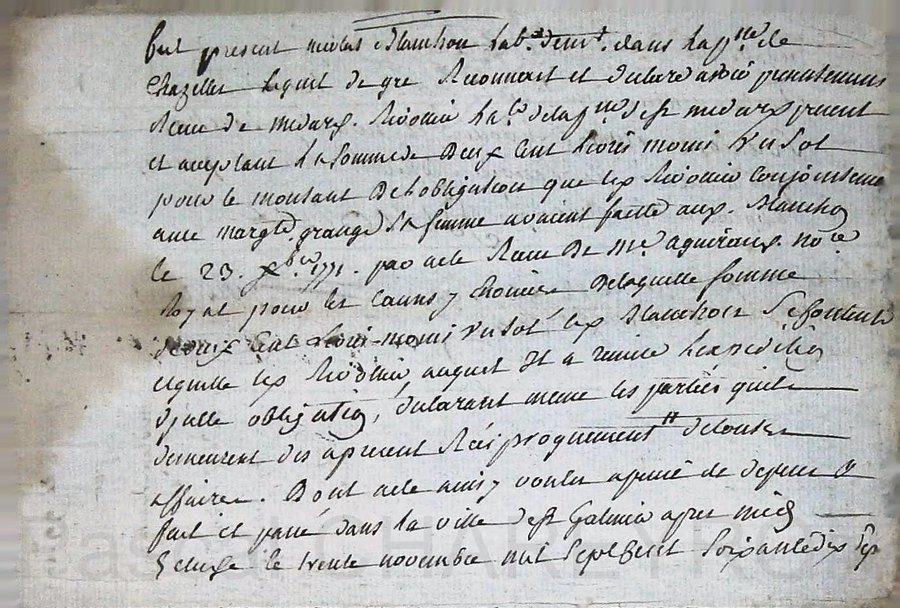 fut present nicolas Blanchon lab.r demt. dans la p.sse de
Chazelles lequel de gré Reconnait et declare avoir
Receu de medard Rivoirie lab.r de la p.sse de st medard present
et acceptant la somme de Deux Cent trois moins un sol
pour le montant De lobligation que led Rivoirie Conjointeme
avec margte. grange Sa femme avaient faitte aud. Blanchon
le 23. xbre 1771. par acte Receu De Me. no.re
Royal pour les causes y Enoncées De laquelle somme
deux Cent trois moins un sol led Blanchon Se Contente
et quitte led Rivoirie, auquel Il a remise lexpedition
djcelle obligation, declarant meme les parties quils
demeurent des apresent Reciproquement quittes de toutes
affaires. Dont acte ainsy voulu
fait et passé dans la ville de st Galmier apres midy
le trente novembre mil Sept Cent Soixante dix sept
Pascal CHAREYRON